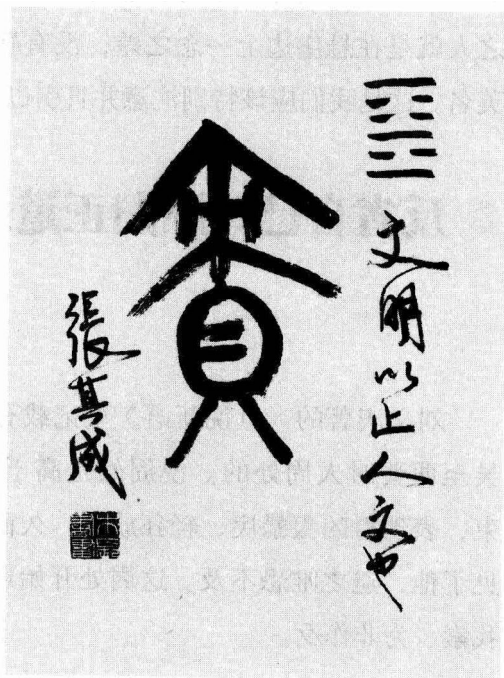 ䷕文明以止人文也
賁
張其成